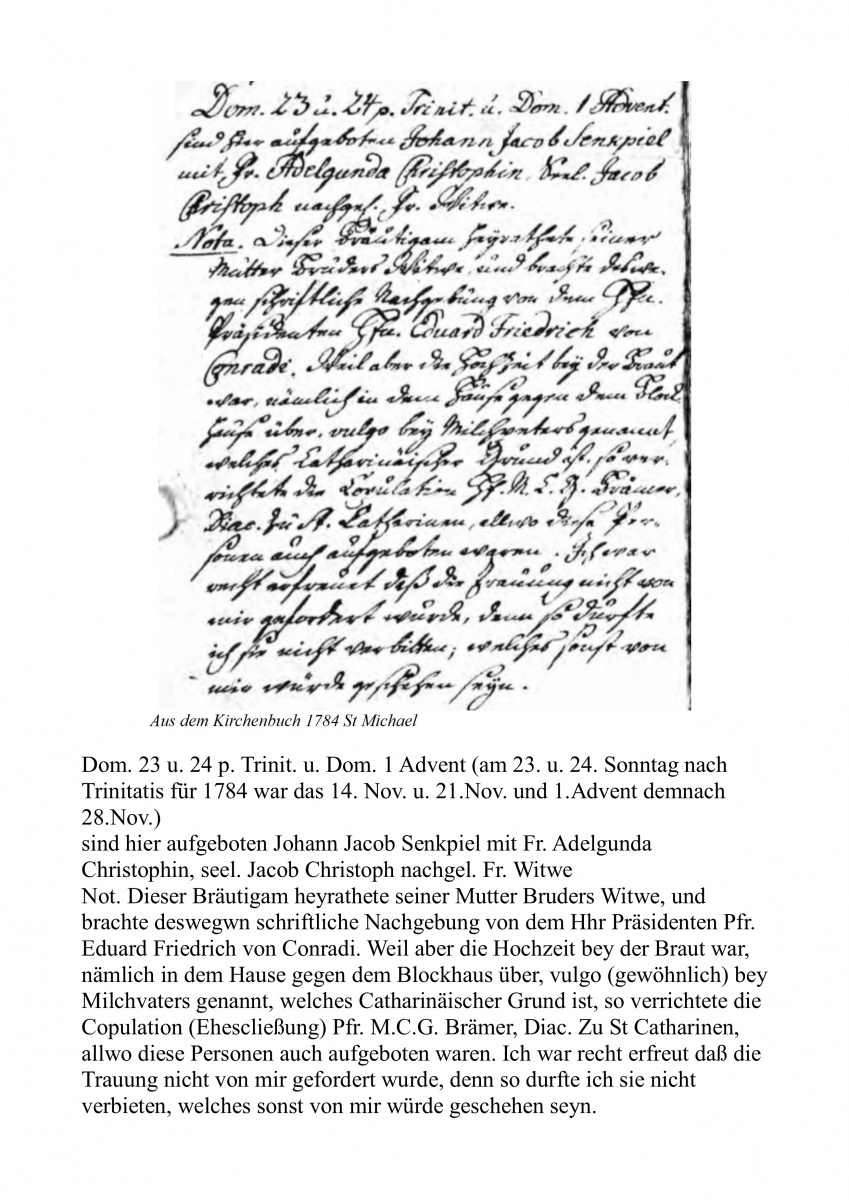 Dom. 23 u. 24 p. Trinit. u. Dom. 1 Advent.
sind hier aufgeboten Johann Jacob Senkpiel
mit Fr. Adelgunda Christophin, Seel. Jacob
Christoph nachgel. Fr. Witwe.
Nota. Dieser Bräutigam heyrathete seiner
Mutter Bruders Witwe, und brachte deswe-
gen schriftliche Nachgebung von dem Hhn.
Präsidenten Hhn. Eduard Friedrich von
Conradi. Weil aber die Hochzeit bey der Braut
war, nämlich in dem Hause gegen dem Block
hause über, vulgo bey Milchveters genannt,
welches Catharinäischer Grund ist, so ver-
richtete die Copulation H. M. C. G. Brämer,
Diac. zu St. Catharinen, allwo diese Per-
sonen auch aufgeboten waren. Ich war
recht erfreuet daß die Trauung nicht von
mir gefordert wurde, denn so durfte
ich sie nicht verbitten; welches sonst von
mir würde geschehen seyn.
Aus dem Kirchenbuch 1784 St Michael
Dom. 23 u. 24 p. Trinit. u. Dom. 1 Advent (am 23. u. 24. Sonntag nach
Trinitatis für 1784 war das 14. Nov. u. 21.Nov. und 1.Advent demnach
28.Nov.)
sind hier aufgeboten Johann Jacob Senkpiel mit Fr. Adelgunda
Christophin, seel. Jacob Christoph nachgel. Fr. Witwe
Not. Dieser Bräutigam heyrathete seiner Mutter Bruders Witwe, und
brachte deswegwn schriftliche Nachgebung von dem Hhr Präsidenten Pfr.
Eduard Friedrich von Conradi. Weil aber die Hochzeit bey der Braut war,
nämlich in dem Hause gegen dem Blockhaus über, vulgo (gewöhnlich) bey
Milchvaters genannt, welches Catharinäischer Grund ist, so verrichtete die
Copulation (Ehescließung) Pfr. M.C.G. Brämer, Diac. Zu St Catharinen,
allwo diese Personen auch aufgeboten waren. Ich war recht erfreut daß die
Trauung nicht von mir gefordert wurde, denn so durfte ich sie nicht
verbieten, welches sonst von mir würde geschehen seyn.